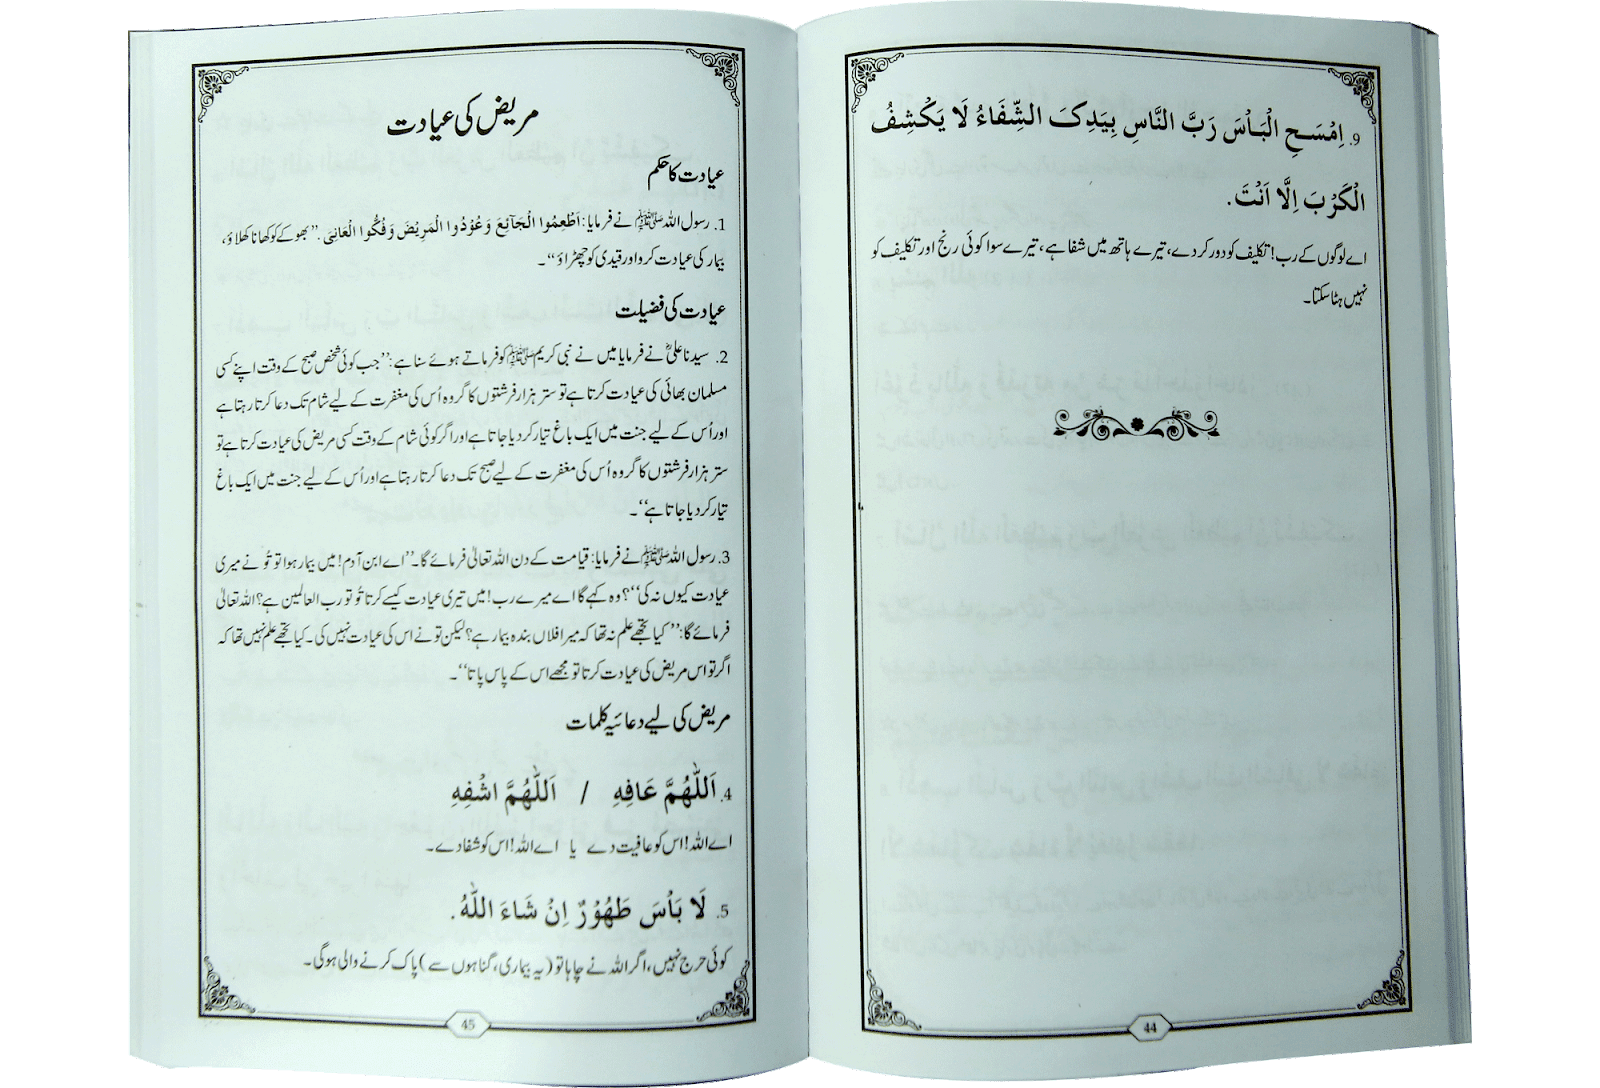 9. اِمْسَحِ الْبَأْسَ رَبَّ النَّاسِ بِيَدِکَ الشِّفَاءُ لَا يَکْشِفُ
الْکَرْبَ اِلَّا اَنْتَ.
اے لوگوں کے رب! تکلیف کو دور کر دے، تیرے ہاتھ میں شفا ہے، تیرے سوا کوئی رنج اور تکلیف کو
نہیں ہٹا سکتا۔
44
مریض کی عیادت
عیادت کا حکم
1. رسول اللہ ﷺ نے فرمایا: اَطْعِمُوا الْجَآئِعَ وَ عُوْدُوا الْمَرِیْضَ وَ فُکُّوا الْعَانِیَ. ’’بھوکے کو کھانا کھلاؤ،
بیمار کی عیادت کرو اور قیدی کو چھڑاؤ‘‘۔
عیادت کی فضیلت
2. سیدنا علیؓ نے فرمایا میں نے نبی کریم ﷺ کو فرماتے ہوئے سنا ہے: ’’جب کوئی شخص صبح کے وقت اپنے کسی
مسلمان بھائی کی عیادت کرتا ہے تو ستر ہزار فرشتوں کا گروہ اُس کی مغفرت کے لیے شام تک دعا کرتا رہتا ہے
اور اُس کے لیے جنت میں ایک باغ تیار کر دیا جاتا ہے اور اگر کوئی شام کے وقت کسی مریض کی عیادت کرتا ہے تو
ستر ہزار فرشتوں کا گروہ اُس کی مغفرت کے لیے صبح تک دعا کرتا رہتا ہے اور اُس کے لیے جنت میں ایک باغ
تیار کر دیا جاتا ہے‘‘۔
3. رسول اللہ ﷺ نے فرمایا: قیامت کے دن اللہ تعالیٰ فرمائے گا۔ ’’اے ابن آدم! میں بیمار ہوا تو تُو نے میری
عیادت کیوں نہ کی‘‘؟ وہ کہے گا اے میرے رب! میں تیری عیادت کیسے کرتا تُو تو رب العالمین ہے؟ اللہ تعالیٰ
فرمائے گا: ’’کیا تجھے علم نہ تھا کہ میرا فلاں بندہ بیمار ہے؟ لیکن تو نے اس کی عیادت نہیں کی۔ کیا تجھے علم نہیں تھا کہ
اگر تو اس مریض کی عیادت کرتا تو مجھے اس کے پاس پاتا‘‘۔
مریض کی لیے دعائیہ کلمات
4. اَللّٰهُمَّ عَافِهِ / اَللّٰهُمَّ اشْفِهِ
اے اللہ! اس کو عافیت دے یا اے اللہ! اس کو شفا دے۔
5. لَا بَأْسَ طَهُوْرٌ اِنْ شَاءَ اللّٰهُ.
کوئی حرج نہیں، اگر اللہ نے چاہا تو (یہ بیماری، گناہوں سے) پاک کرنے والی ہوگی۔
45